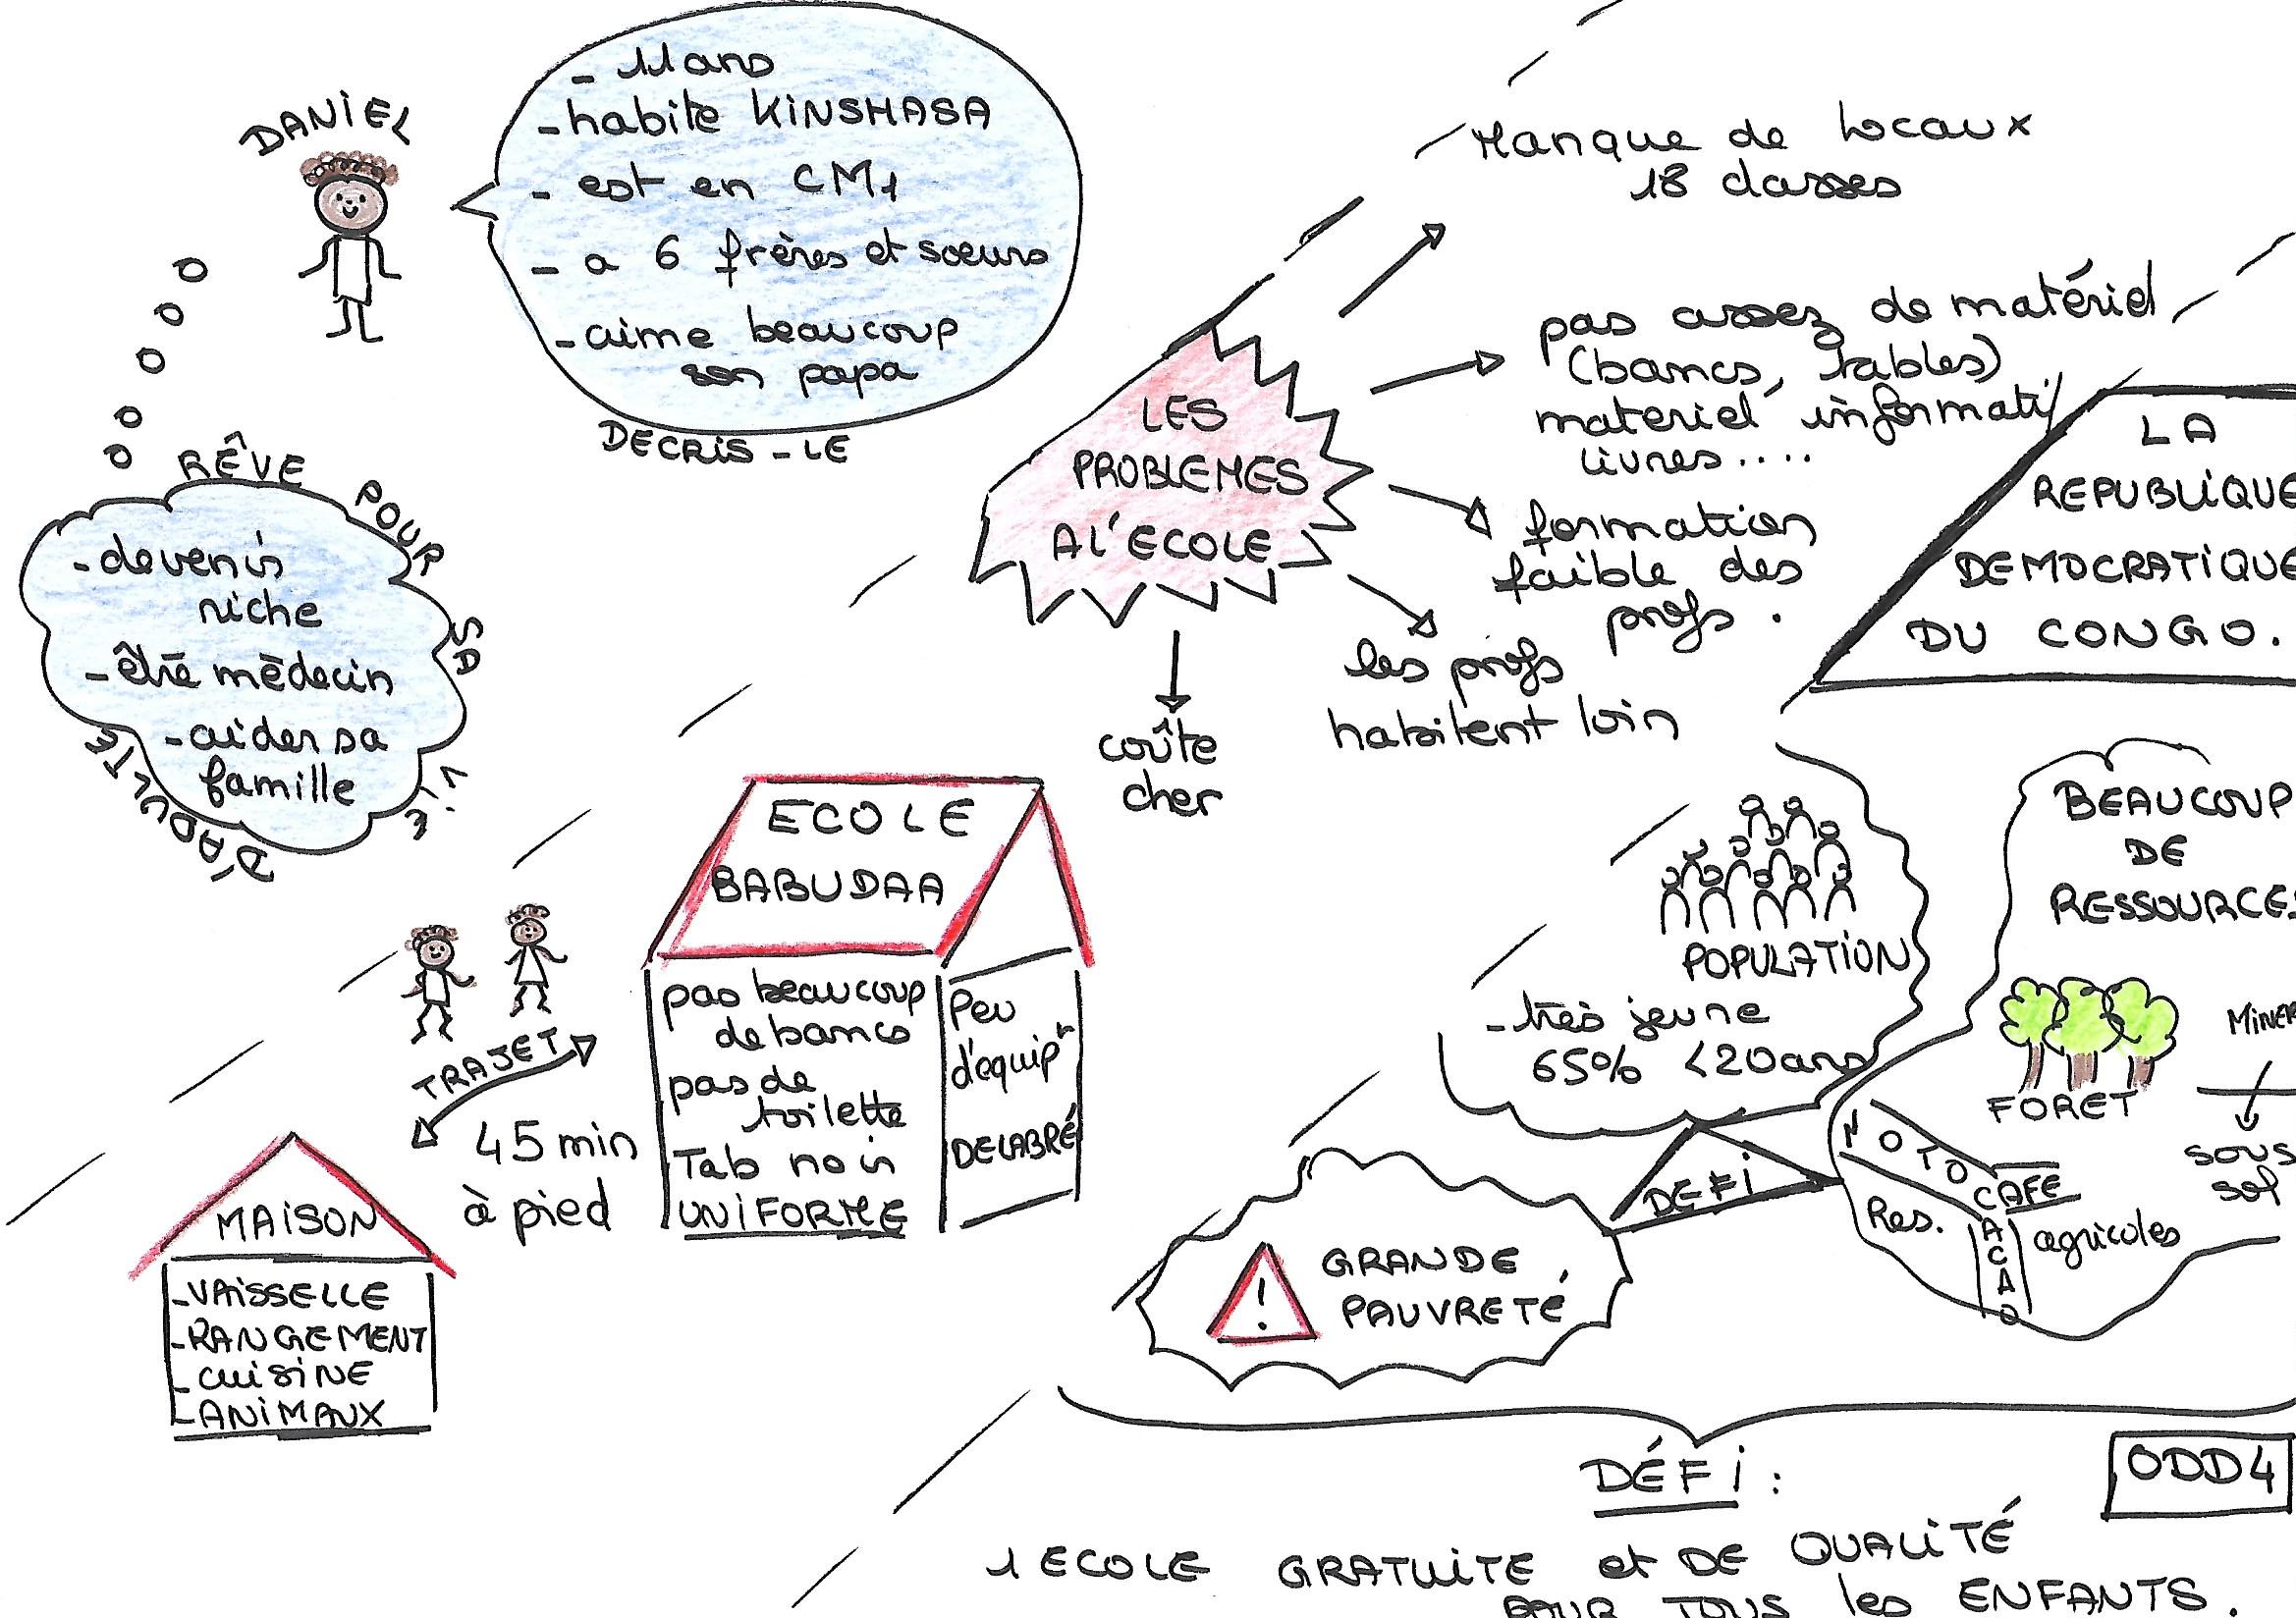 DANIEL
- 11 ans
- habite KINSHASA
- est en CM1
- a 6 frères et soeurs
- aime beaucoup
son papa
DECRIS-LE
RÊVE POUR SA VIE D'ADULTE
- devenir
riche
- être médecin
- aider sa
famille
LES
PROBLEMES
A L'ECOLE
Manque de locaux
18 classes
pas assez de matériel
(bancs, tables)
materiel informati
livres....
formation
faible des
profs.
les profs
habitent loin
coûte
cher
LA
REPUBLIQUE
DEMOCRATIQUE
DU CONGO.
ECOLE
BABUDAA
pas beaucoup
de bancs
pas de
toilette
Tab noir
UNIFORME
Peu
d'equipt
DELABRÉ
TRAJET
45 min
à pied
MAISON
- VAISSELLE
- RANGEMENT
- CUISINE
- ANIMAUX
POPULATION
- très jeune
65% <20ans
BEAUCOUP
DE
RESSOURCES
FORET
MINER
sous
sol
CAFE
CACAO
Res. agricoles
DEFI
GRANDE
PAUVRETÉ
DÉFI :
ODD4
1 ECOLE GRATUITE et DE QUALITÉ
POUR TOUS les ENFANTS.